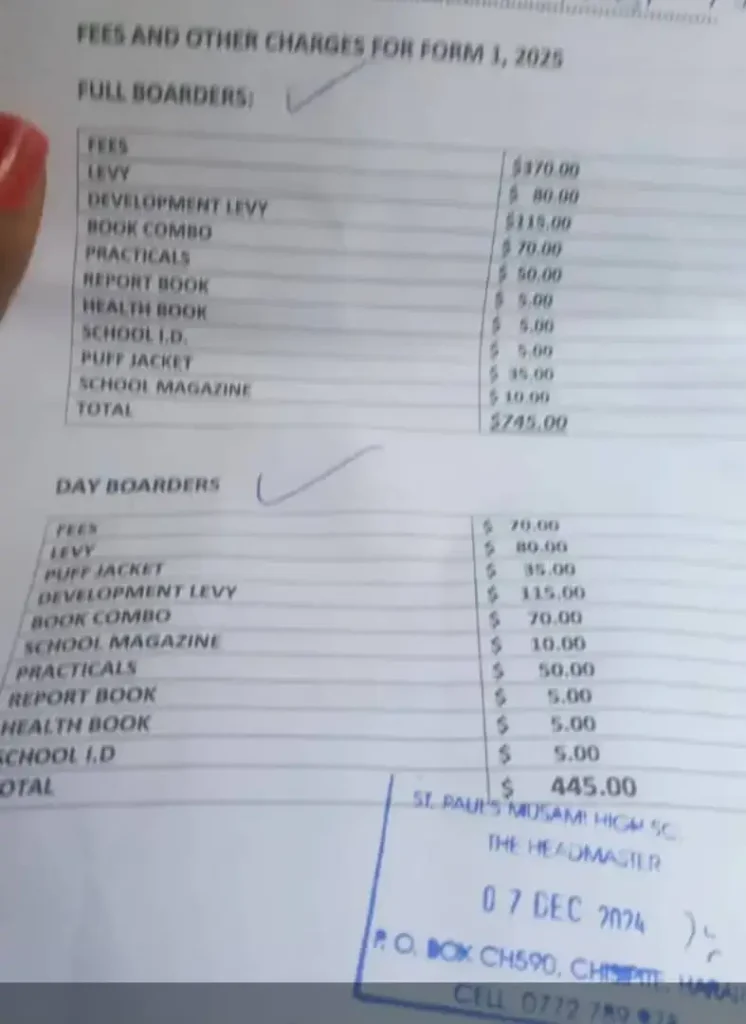 FEES AND OTHER CHARGES FOR FORM 1, 2025
FULL BOARDERS:
FEES $370.00
LEVY $ 80.00
DEVELOPMENT LEVY $115.00
BOOK COMBO $ 70.00
PRACTICALS $ 50.00
REPORT BOOK $ 5.00
HEALTH BOOK $ 5.00
SCHOOL I.D. $ 5.00
PUFF JACKET $ 35.00
SCHOOL MAGAZINE $ 10.00
TOTAL $745.00
DAY BOARDERS
FEES $ 70.00
LEVY $ 80.00
PUFF JACKET $ 35.00
DEVELOPMENT LEVY $ 115.00
BOOK COMBO $ 70.00
SCHOOL MAGAZINE $ 10.00
PRACTICALS $ 50.00
REPORT BOOK $ 5.00
HEALTH BOOK $ 5.00
CHOOL I.D $ 5.00
OTAL $ 445.00
ST. PAUL'S MUSAMI HIGH SC
THE HEADMASTER
07 DEC 2024
P. O. BOX CH590, CHISIPITE, HARA
CELL 0772 789